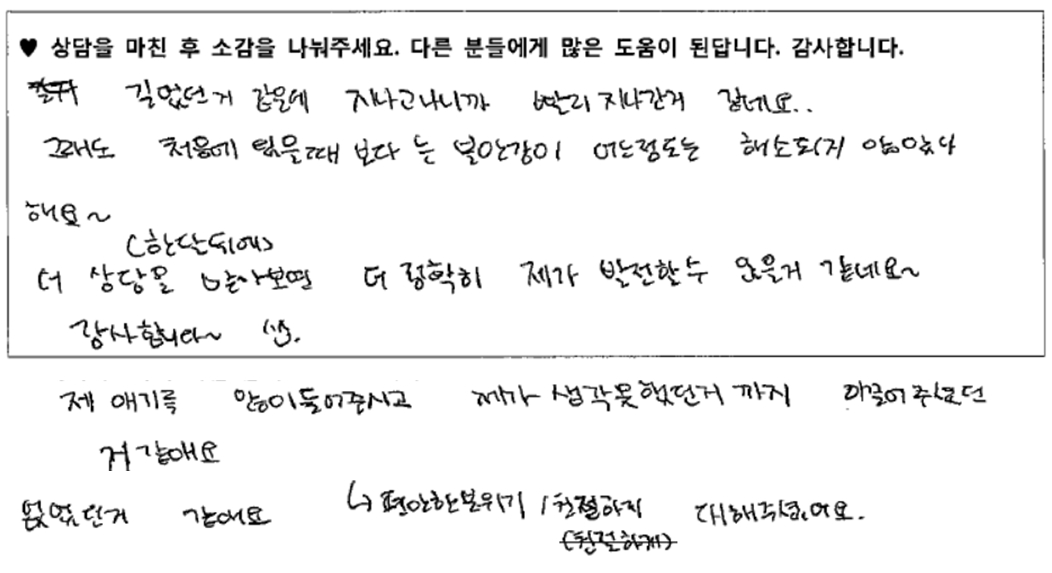 ♥ 상담을 마친 후 소감을 나눠주세요. 다른 분들에게 많은 도움이 된답니다. 감사합니다.
길었던거 같은데 지나고나니까 빨리 지나간거 같네요..
그래도 처음에 왔을때 보다 는 불안감이 어느정도는 해소되지 않았나
해요~
(한달뒤에)
더 상담을 받아보면 더 정확히 제가 발전할수 있을거 같네요~
감사합니다~
제 얘기를 많이들어주시고 제가 생각못했던거 까지 이끌어주셨던
거 같애요
없었던거 같애요 ↳ 편안한분위기 / 친절하게 대해주셨어요.
(친절하게)